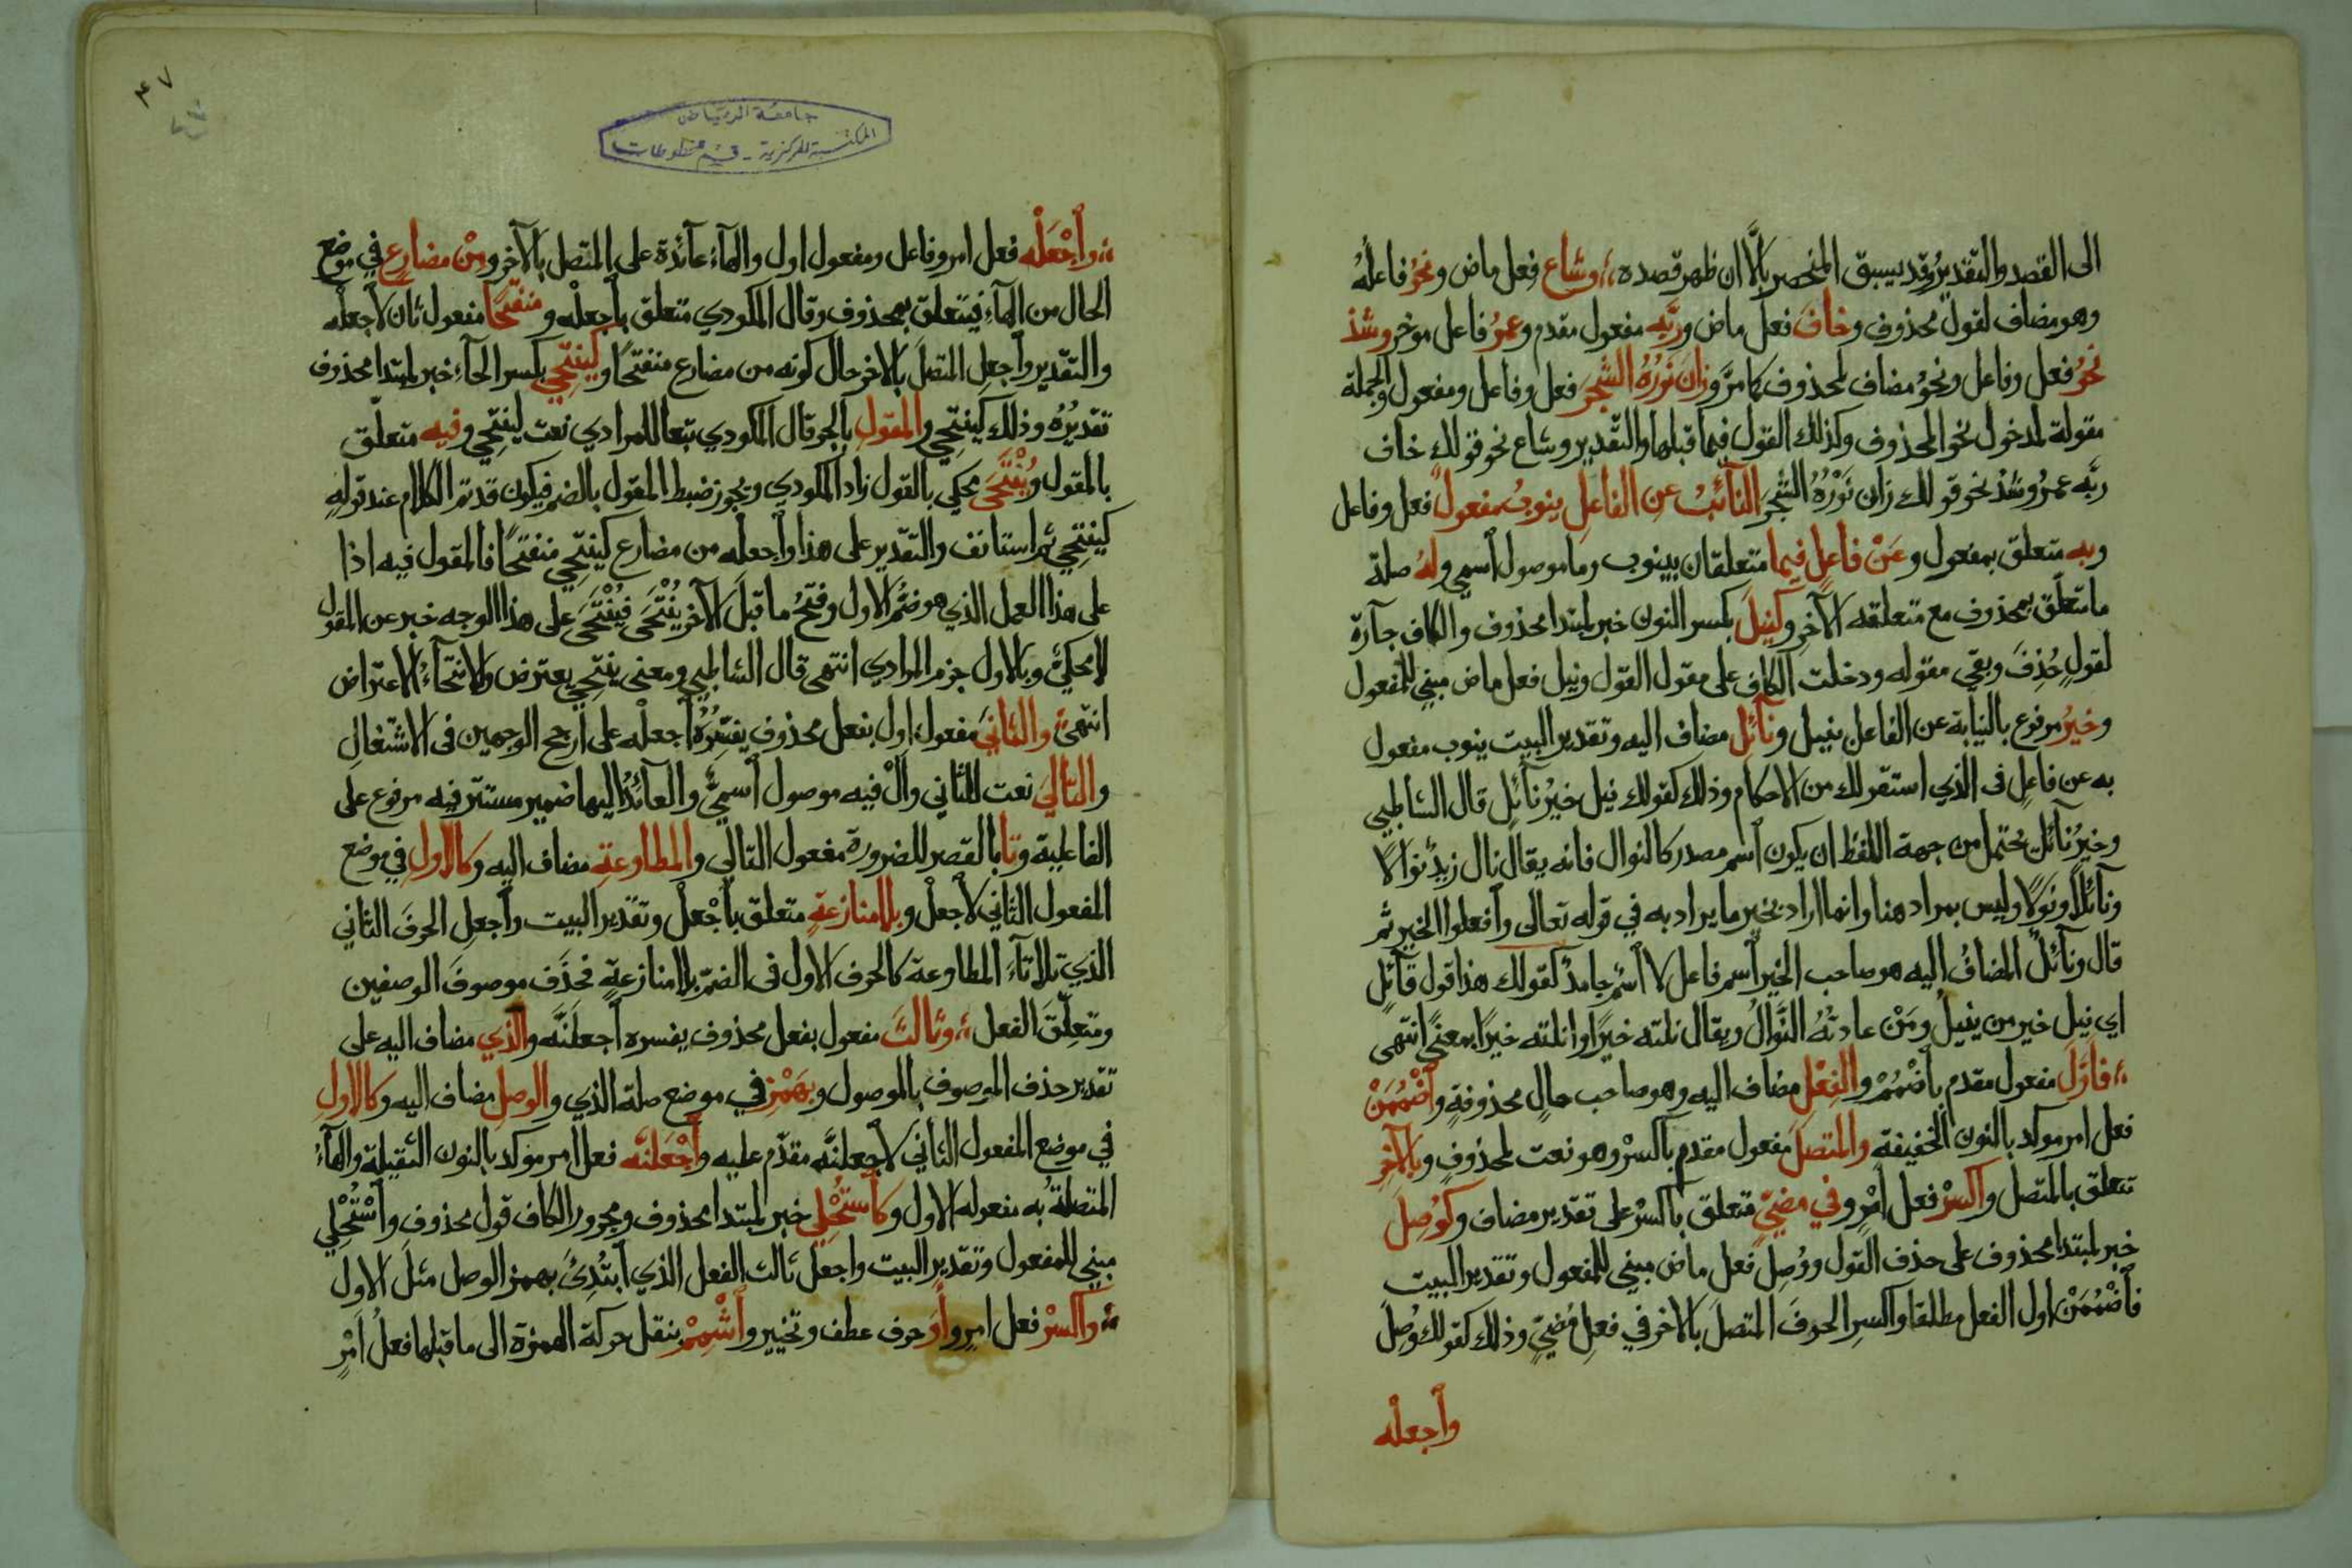 الى القصد والتقديرُ وقد يسبق المنحصر بإلَّا ان ظهر قصده، وشاع فعل ماض ونحوُ فاعلهُ
وهو مضاف لقول محذوف وخافَ فعل ماض وربَّه مفعول مقدم وعمرُ فاعل موخر وشذ
نحوُ فعل وفاعل ونحوُ مضاف لمحذوف كما مرَّ وزانَ نَوْرُهُ الشَّجَرَ فعل وفاعل ومفعول والجملة
مقولة لمدخول نحو المحذوف وكذلك القول فيما قبلها والتقدير وشاع نحو قولك خاف
ربَّه عمرُ وشذ نحو قولك زان نَوْرُهُ الشجرَ النآئبُ عن الفاعلِ ينوبُ مفعولٌ فعل وفاعل
وبه متعلق بمفعول وعَنْ فاعلٍ فيما متعلقان بينوب وما موصول اسمي ولهُ صلة
ما متعلق بمحذوف مع متعلقه الآخرِ وكنيلَ بكسر النون خبر لمبتدا محذوف والكاف جآرة
لقولٍ حُذِفَ وبقي مقوله ودخلت الكاف على مقول القول ونيل فعل ماض مبني للمفعول
وخيرُ مرفوع بالنيابة عن الفاعل بنيل ونآئلِ مضاف اليه وتقدير البيت ينوب مفعول
به عن فاعلٍ فى الذي استقر لك من الاحكام وذلك كقولك نيل خيرُ نآئلِ قال الشاطبي
وخيرُ نآئلٍ يحتمل من جهة اللفظ ان يكون اسم مصدر كالنوال فانه يقال نال زيدٌ نوالاً
ونآئلًا ونَوْلاً وليس بمراد هنا وانما اراد بخير ما يراد به في قوله تعالى وافعلوا الخير ثم
قال ونآئلٌ المضافُ اليه هو صاحب الخير اسم فاعل لا اسْمٌ جامدٌ كقولك هذا قول قآئلٍ
اي نيل خير من ينيلُ ومَنْ عادتُهُ النَّوالُ ويقال نلته خيرًا وانلته خيرًا بمعنًى انتهى
فاوَّلَ مفعول مقدم باضْمُمْ والفِعْلِ مضاف اليه وهو صاحب حالٍ محذوفةٍ واضْمُمَنْ
فعل امر موكد بالنون الخفيفة والمتصلَ مفعول مقدم باكسرْ وهو نعت لمحذوفٍ وبالآخِرِ
تتعلق بالمتصل واكسرْ فعل امْرٍ وفي مضيّ متعلق باكسرْ على تقدير مضاف وكوُصِلَ
خبر لمبتدا محذوف على حذف القول ووُصِل فعل ماض مبني للمفعول وتقدير البيت
فاضْمُمَنْ اول الفعل مطلقا واكسِرِ الحرفَ المتصلَ بالاخر في فعلِ مُضيّ وذلك كقولك وُصِلَ
واجعلْه
٤٧
جامعة الرياض
المكتبة المركزية - قسم المخطوطات
واجْعَلْه فعل امر وفاعل ومفعول اول والهآء عآئدة على المتصل بالآخر ومنْ مضارعٍ في موضع
الحال من الهآءِ فيتعلق بمحذوف وقال المكودي متعلق باجعلْه ومنفتحًا مفعول ثان لاجعلْه
والتقدير واجعلِ المتصلَ بالاخر حال كونه من مضارع منفتحًا وكينتَحِي بكسر الحآءِ خبر لمبتدا محذوف
تقديرُهُ وذلك كينتَحِي والمقولِ بالجر قال المكودي تبعا للمرادي نعت لينتَحِي وفيه متعلق
بالمقول ويُنْتَحَى محكي بالقول زاد المكودي ويجوز ضبط المقول بالضم فيكون قد تم الكلام عند قولهِ
كينتحِي ثم استانف والتقدير على هذا واجعله من مضارع كينتحِي منفتحًا فالمقول فيه اذا
على هذا العمل الذي هو ضمُّ الاول وفتحُ ما قبلَ الآخر يُنْتَحَى فيُنْتَحَى على هذا الوجه خبر عن المقول
لا محكيٌّ وبالاول جزم المرادي انتهى قال الشاطبي ومعنى ينتحِي يعترض والانتحآءُ الاعتراض
انتهى والثانيَ مفعول اول بفعل محذوف يفسِّرُهُ اجعلْه على ارجح الوجهين فى الاشتغالِ
والتاليَ نعت للثاني والْ فيه موصول اسميٌّ والعآئدُ اليها ضمير مستتر فيه مرفوع على
الفاعلية وتا بالقصر للضرورة مفعول التالي والمطاوعةِ مضاف اليه وكالاولِ في موضع
المفعول الثاني لاجعلْ وبلا منازعةٍ متعلق باجْعلْ وتقدير البيت واجعلِ الحرفَ الثاني
الذي تلا تآءَ المطاوعة كالحرف الاول فى الضمّ بلا منازعةٍ فحَذَف موصوفَ الوصفين
ومتعلِّقَ الفعل، وثالثَ مفعول بفعل محذوف يفسره اجعلَنَّه والذي مضاف اليه على
تقدير حذف الموصوف بالموصول وبهَمْزِ في موضع صلة الذي والوصلِ مضاف اليه وكالاولِ
في موضع المفعول الثاني لاجعلنَّه مقدّم عليه واجْعَلَنَّه فعل امر موكد بالنون الثقيلة والهآءُ
المتصلة به مفعوله الاول وكاستُحْلِي خبر لمبتدا محذوف ومجرور الكاف قول محذوف واسْتُحْلِي
مبني للمفعول وتقدير البيت واجعل ثالث الفعل الذي ابتُدِئَ بهمز الوصل مثلَ الاول
واكسرْ فعل امرٍ واوَ حرف عطف وتخيير واشْمِمْ بنقل حركة الهمزة الى ما قبلها فعلُ امْرٍ